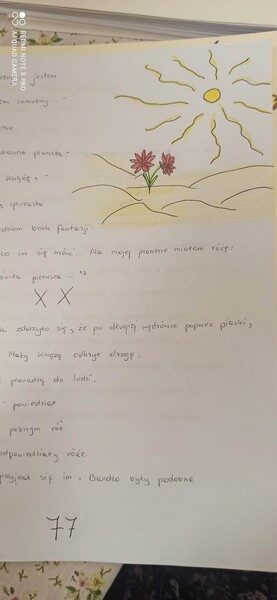 REDMI NOTE 8 PRO
AI QUAD CAMERA
jestem
samotny...
planeta -
książę, -
brak fantazji
co im się mówi... Na mojej planecie miałem różę:
pierwsza..."
X X
zdarzyło się, że po długiej wędrówce poprzez piaski,
Mały Książę odkrył drogę.
prowadzą do ludzi.
- powiedział
pełnym róż.
odpowiedziały róże.
przyjrzał się im. Bardzo były podobne
77